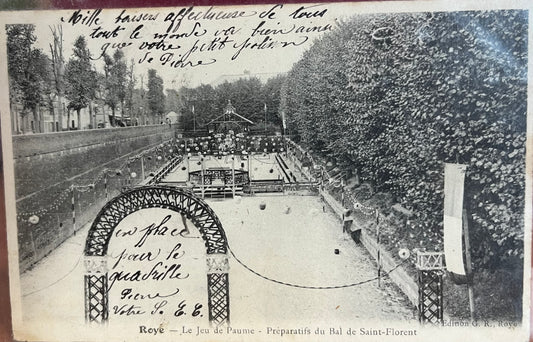 Mille baisers affectueuse de tous
tout le monde va bien ainsi
que votre petit polisson
de Pierre
en place
pour le
quadrille
Pierre
Votre S. E. E.
Roye — Le Jeu de Paume - Préparatifs du Bal de Saint-Florent
Edition G. R., Roye